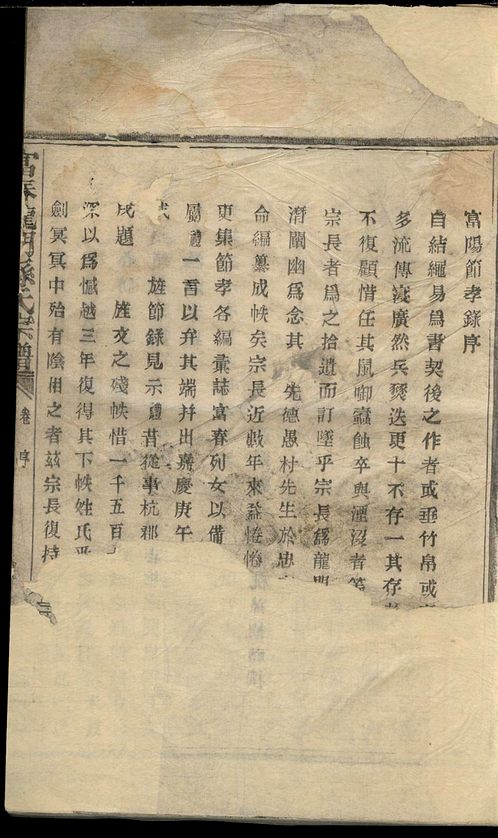 富陽節孝錄序
自結繩易爲書契後之作者或垂竹帛或
多流傳寖廣然兵燹迭更十不存一其存者
不復顧惜任其鼠啣蠹蝕卒與湮沒者等
宗長者爲之拾遺而訂墜乎宗長爲龍門
潛闡幽爲念其 先德愚村先生於忠
命編纂成帙矣宗長近數年來益惓惓
更集節孝各編彙誌富春列女以備
屬禮一言以弁其端并出嘉慶庚午
旌節錄見示禮昔從事杭郡
題 旌文之殘帙惜一千五百
深以爲憾越三年復得其下帙姓氏
劍冥冥中殆有陰相之者茲宗長復持
富春龍門孫氏宗譜
卷 序